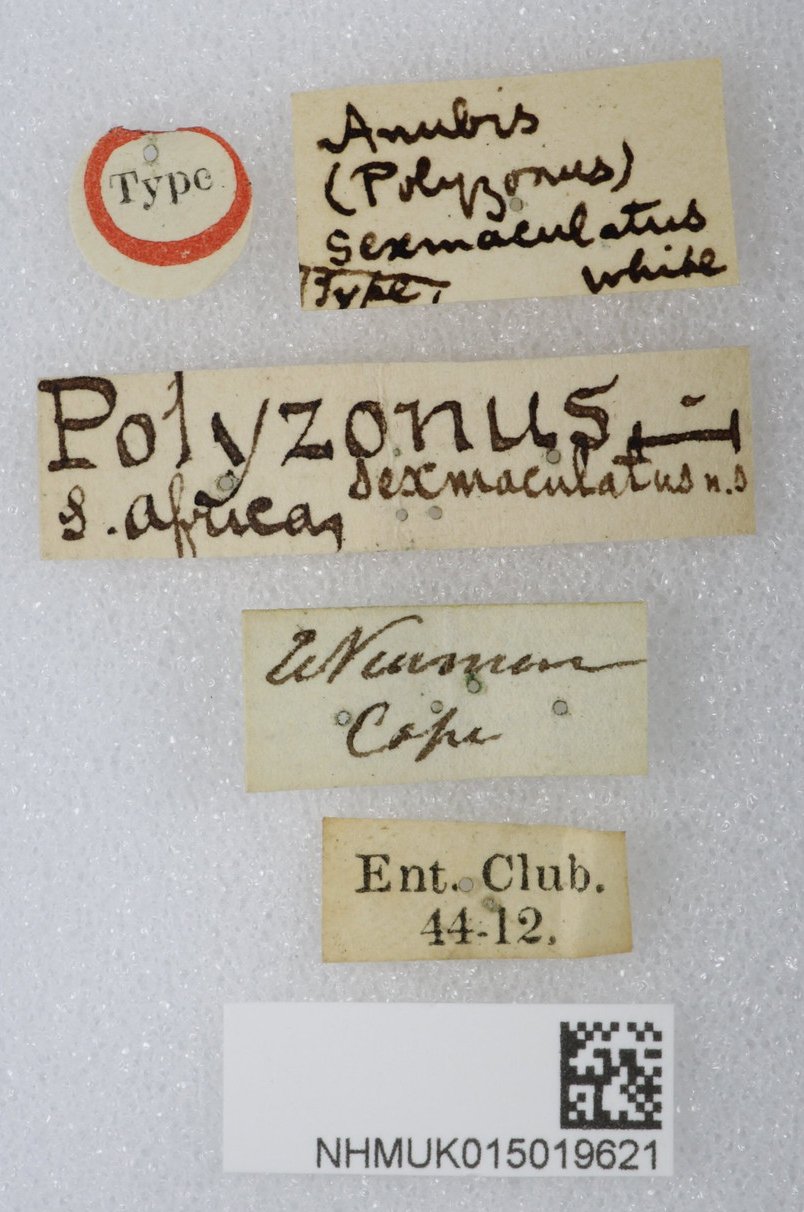 Type
Anubis
(Polyzonus)
sexmaculatus
Type, White
Polyzonus
sexmaculatus n.s
S. Africa,
Newman
Cape
Ent. Club.
44-12.
NHMUK015019621